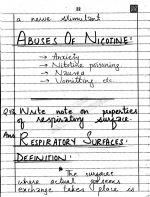 a nerve stimulant
ABUSES OF NICOTINE:
→ Anxiety
→ Nitotine poisoning.
→ Nausea
→ Vomitting. etc
Write note on properties
of respiratory surface.
Ans RESPIRATORY SURFACES:
DEFINITION:
The surface
where actual gaseous
exchange takes place is